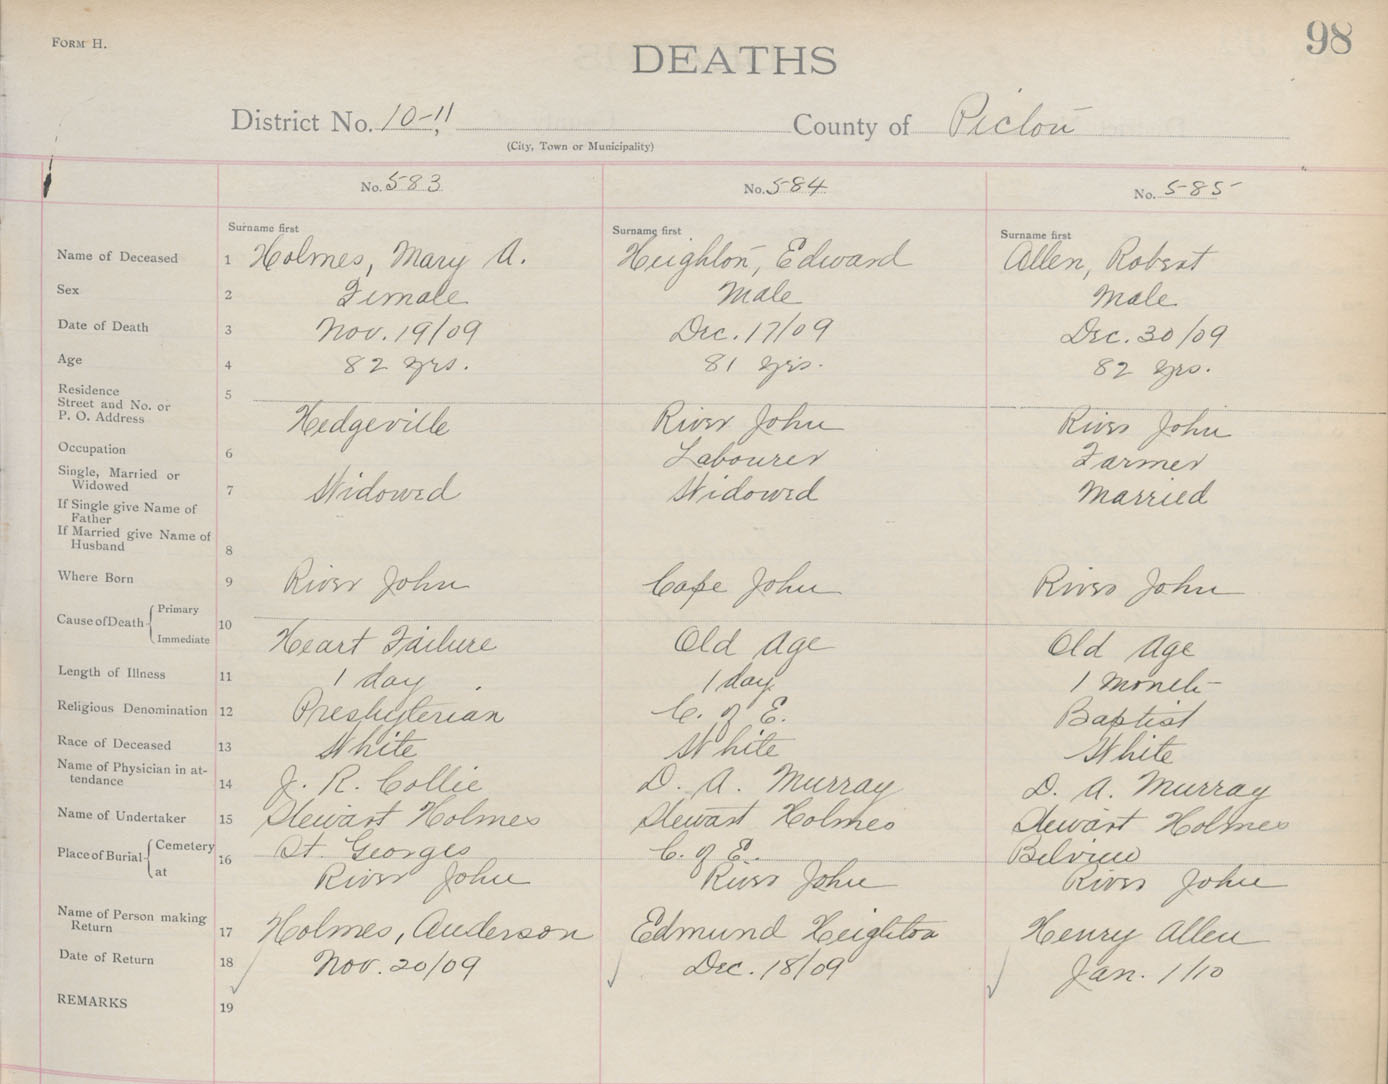 FORM H.
98
DEATHS
District No. 10-11 County of Pictou
(City, Town or Municipality)
No. 583 No. 584 No. 585
Surname first Surname first Surname first
Name of Deceased 1 Holmes, Mary A. Heighton, Edward Allen, Robert
Sex 2 Female Male Male
Date of Death 3 Nov. 19/09 Dec. 17/09 Dec. 30/09
Age 4 82 yrs. 81 yrs. 82 yrs.
Residence
Street and No. or 5
P. O. Address Hedgeville River John River John
Occupation 6 Labourer Farmer
Single, Married or
Widowed 7 Widowed Widowed Married
If Single give Name of
Father
If Married give Name of
Husband 8
Where Born 9 River John Cape John River John
Cause of Death Primary 10
Immediate Heart Failure Old Age Old Age
Length of Illness 11 1 day 1 day 1 month
Religious Denomination 12 Presbyterian C. of E. Baptist
Race of Deceased 13 White White White
Name of Physician in at-
tendance 14 J. R. Collie D. A. Murray D. A. Murray
Name of Undertaker 15 Stewart Holmes Stewart Holmes Stewart Holmes
Place of Burial Cemetery 16 St. Georges C. of E. Belview
at River John River John River John
Name of Person making
Return 17 Holmes, Anderson Edmund Heighton Henry Allen
Date of Return 18 Nov. 20/09 Dec. 18/09 Jan. 1/10
REMARKS 19